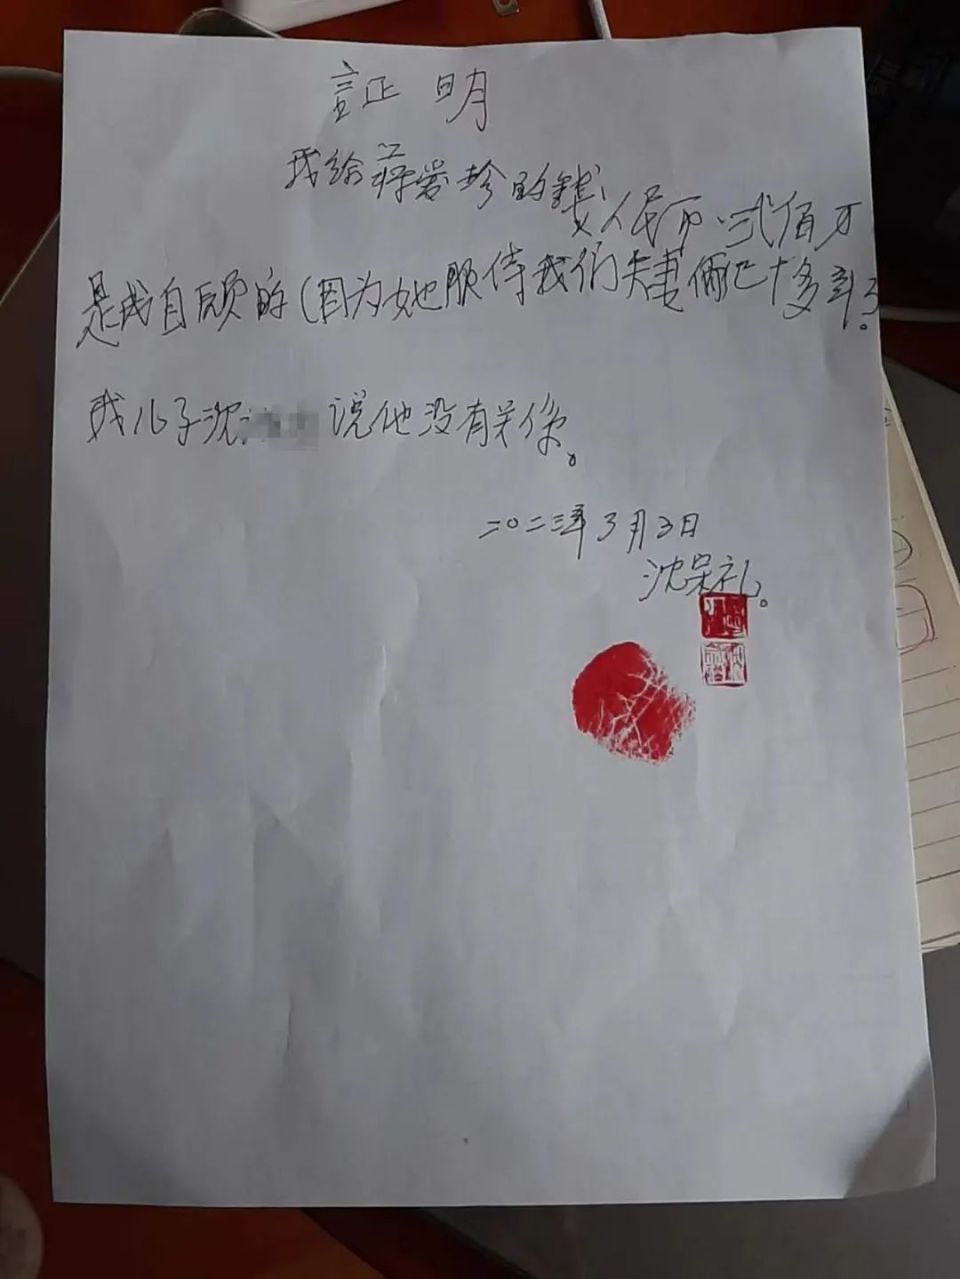 証明
我给蒋爱珍的钱
人民币.弍佰万
是我自愿的(因为她服侍我们夫妻俩已十多年了。
我儿子沈 说他没有关系。
二〇二三年3月3日
沈杲礼。